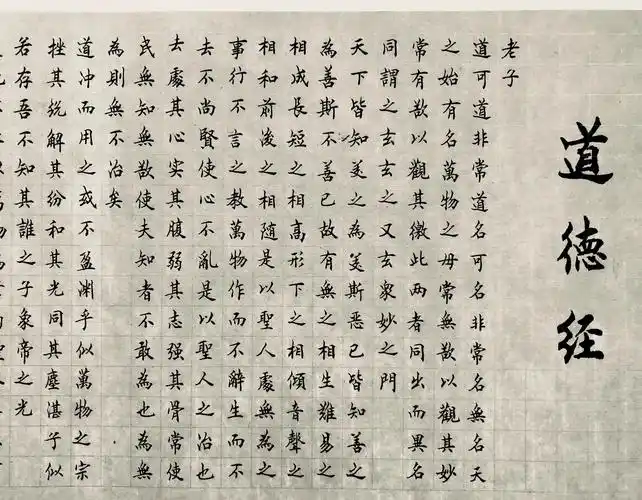 道德经
老子
道可道非常道名可名非常名無名天
之始有名萬物之母常無欲以觀其妙
常有欲以觀其徼此兩者同出而異名
同謂之玄玄之又玄衆妙之門
天下皆知美之為美斯惡已皆知善之
為善斯不善已故有無之相生難易之
相成長短之相高形下之相傾音聲之
相和前後之相隨是以聖人處無為之
事行不言之教萬物作而不解生而不
去不尚賢使心不亂是以聖人之治也
去處其心實其腹弱其志强其骨常使
民無知無欲使夫知者不敢為也為無
為則無不治矣
道冲而用之或不盈渊乎似萬物之宗
挫其锐解其紛和其光同其塵湛子似
若存吾不知其誰之子象帝之光